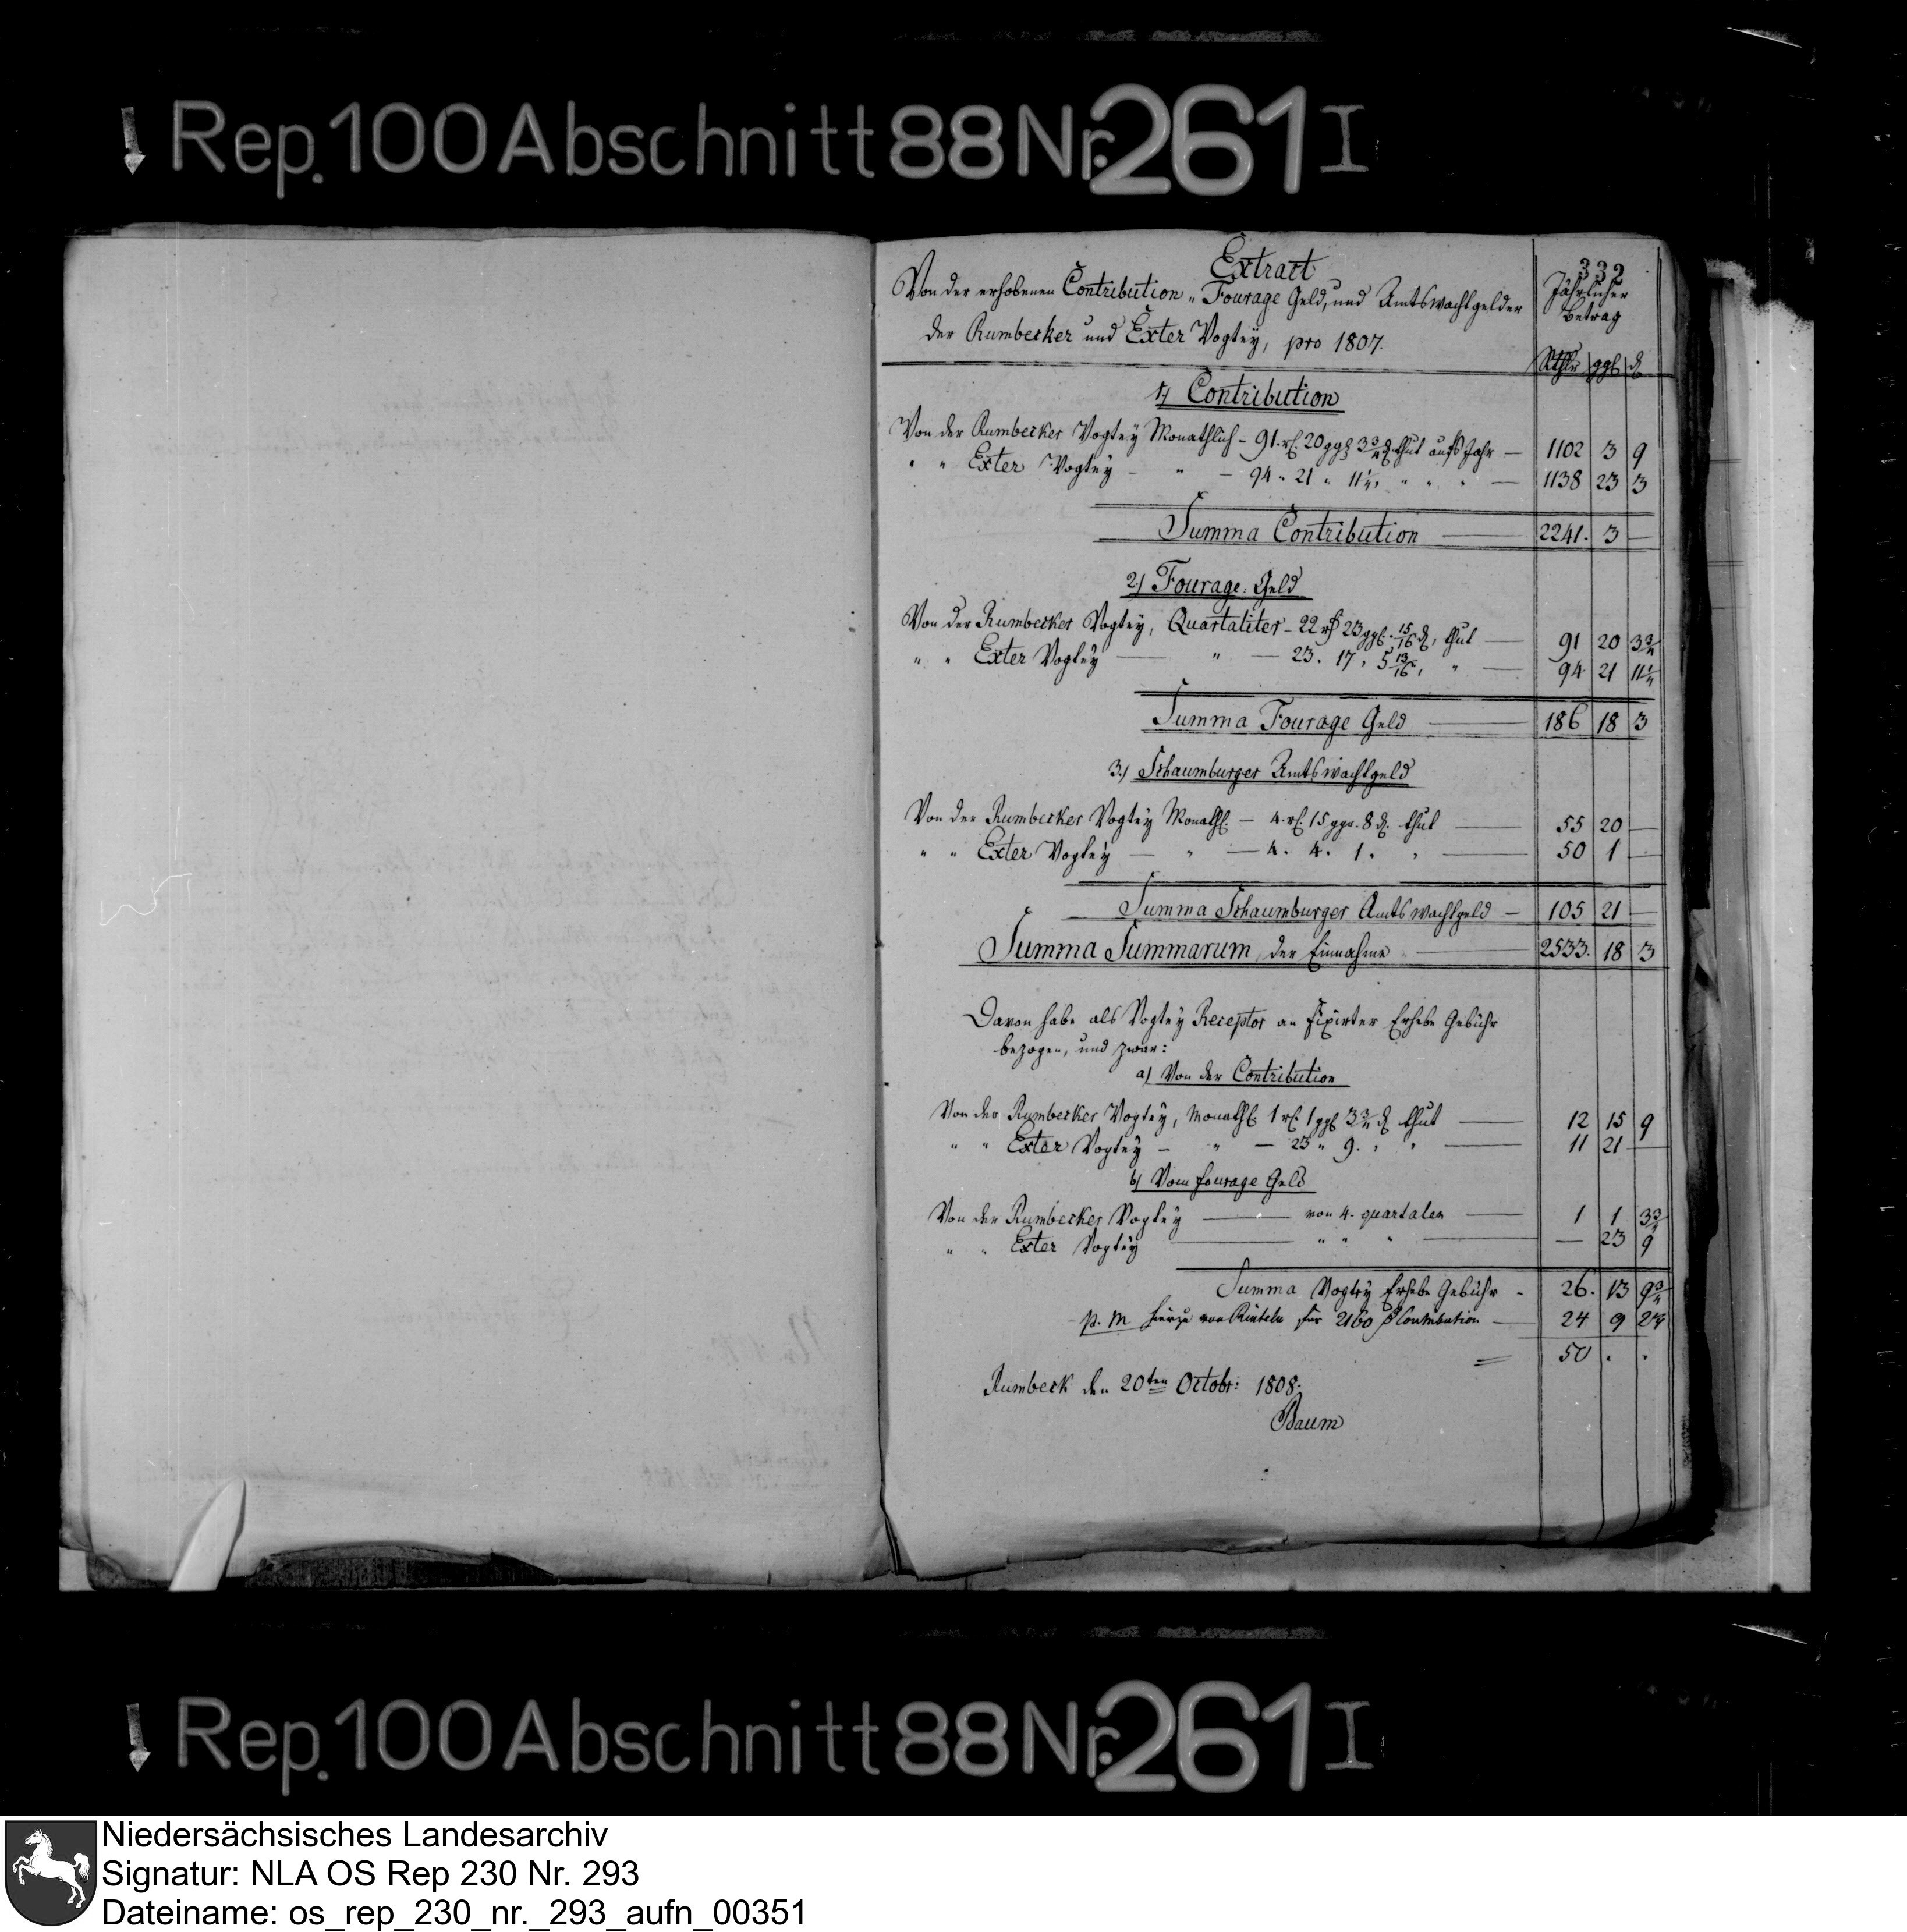 Rep. 100 Abschnitt 88 Nr. 261 I
332
Extract
Von der erhobenen Contribution, Fourage Geld, und Amtswachtgelder
der Rumbecker und Exter Vogtey, pro 1807.
Jährlicher
Betrag
Rthlr ggl ₰
1) Contribution
Von der Rumbecker Vogtey Monathlich - 91 rl. 20 ggl 3 3/4 ₰ thut aufs Jahr — 1102 3 9
" " Exter Vogtey - " - 94 " 21 " 11 1/4 " " " " — 1138 23 3
Summa Contribution — 2241. 3 —
2) Fourage Geld
Von der Rumbecker Vogtey, Quartaliter - 22 rl 23 ggl. 15/16 ₰, thut — 91 20 3 3/4
" " Exter Vogtey — " — 23. 17. 5 13/16, " — 94 21 11 1/4
Summa Fourage Geld — 186 18 3
3.) Schaumburger Amtswachtgeld
Von der Rumbecker Vogtey Monathl. — 4 rl. 15 ggr. 8 ₰. thut — 55 20 —
" " Exter Vogtey — " — 4. 4. 1. " — 50 1 —
Summa Schaumburger Amtswachtgeld — 105 21 —
Summa Summarum der Einnahme — 2533. 18 3
Davon habe als Vogtey Receptor an fixirter Erhebe Gebühr
bezogen, und zwar:
a) Von der Contribution
Von der Rumbecker Vogtey, Monathl. 1 rl. 1 ggl 3 3/4 ₰ thut — 12 15 9
" " Exter Vogtey - " — 23 " 9. " " — 11 21 —
b) Vom fourage Geld
Von der Rumbecker Vogtey — von 4. quartalen — 1 1 3 3/4
" " Exter Vogtey — " " " — — 23 9
Summa Vogtey Erhebe Gebühr - 26. 13 9 3/4
p. m hierzu von Rinteln für 2160 Contribution — 24 9 2 1/4
= 50 . .
Rumbeck den 20ten Octobr: 1808.
Baum
Rep. 100 Abschnitt 88 Nr. 261 I
Niedersächsisches Landesarchiv
Signatur: NLA OS Rep 230 Nr. 293
Dateiname: os_rep_230_nr._293_aufn_00351